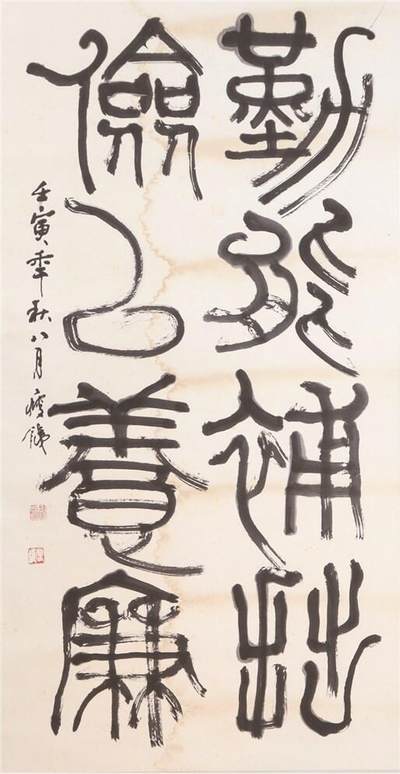 勤能補拙
儉以養廉
壬寅年秋八月瘦鐵